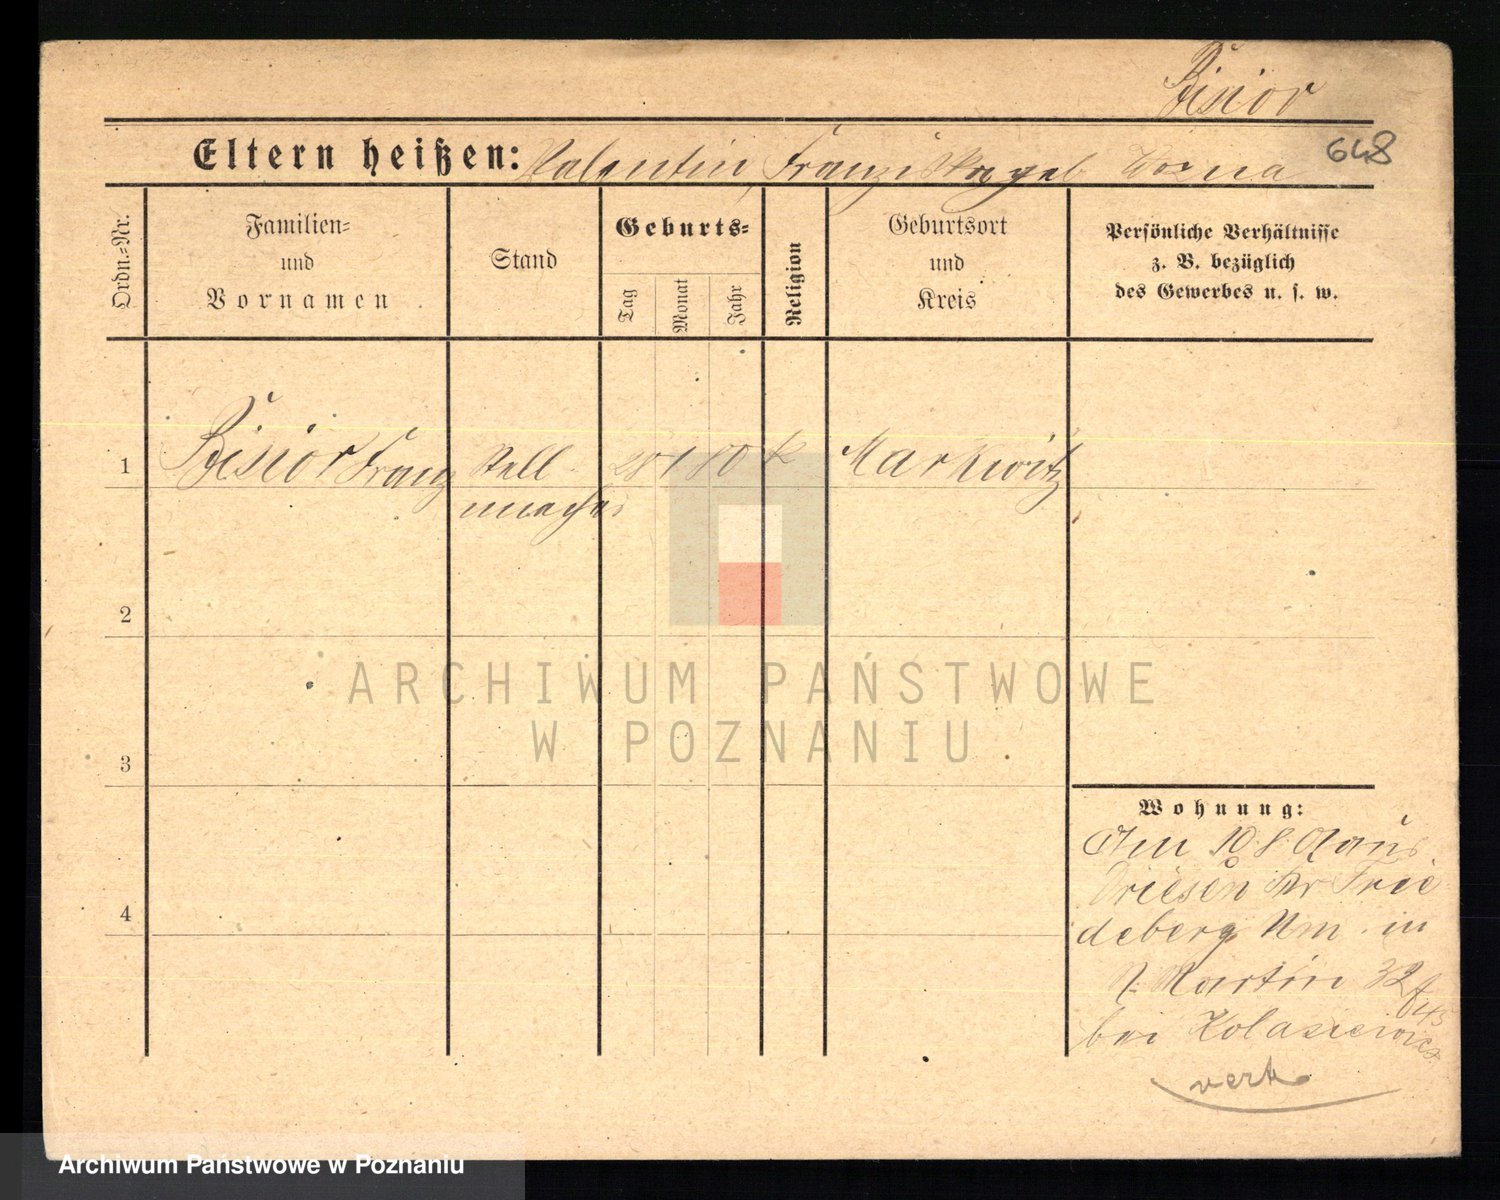 Bisior
Eltern heißen: Valentin, Franziska geb Wozna
648
Ordn.-Nr.
Familien-
und
Vornamen
Stand
Geburts-
Tag
Monat
Jahr
Religion
Geburtsort
und
Kreis
Persönliche Verhältnisse
z. B. bezüglich
des Gewerbes u. s. w.
1 Bisior Franz Stell 28 1 80 k Markwitz
macher
2
3
4
Wohnung:
Am 10.8. aus
Driesen Kr Frie
deberg Nm. in
St. Martin 32
bei Kolasiewicz
verh
ARCHIWUM PAŃSTWOWE
W POZNANIU
Archiwum Państwowe w Poznaniu